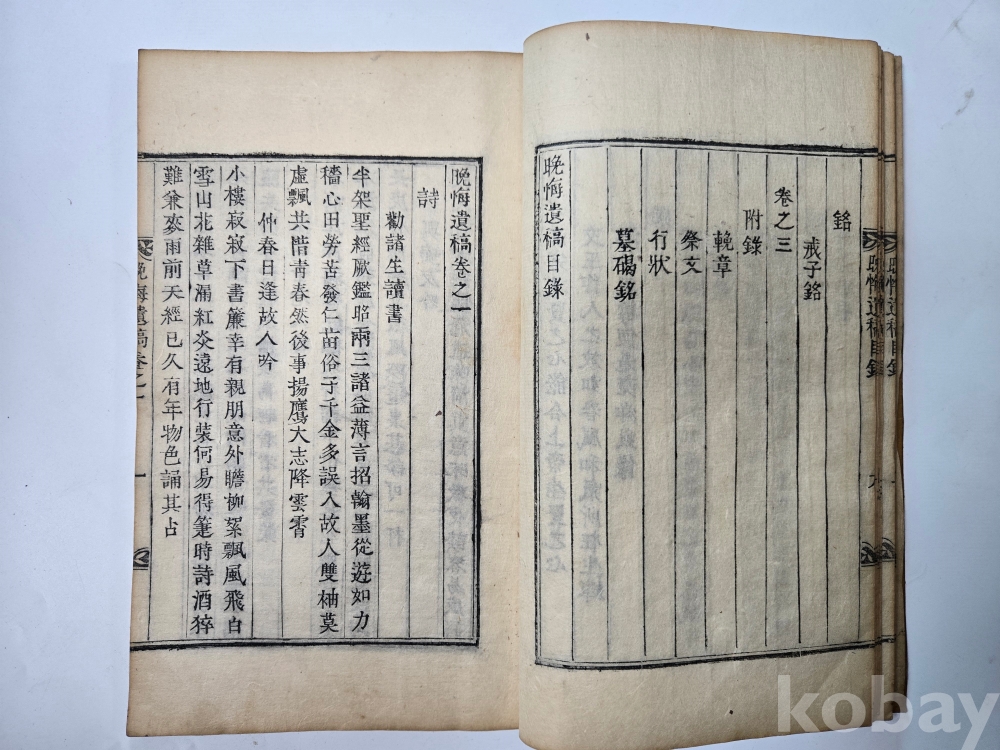 晩悔遺稿目錄
銘
戒子銘
卷之三
附錄
輓章
祭文
行狀
墓碣銘
晩悔遺稿目錄
晩悔遺稿卷之一
詩
勸諸生讀書
半架聖經厥鑑昭兩三諸益薄言招翰墨從遊如力
穡心田勞苦發仁苗俗子千金多誤入故人雙柚莫
虛飄共惜靑春然後事揚鷹大志降雲霄
仲春日逢故人吟
小樓寂寂下書簾幸有親朋意外瞻柳絮飄風飛白
雪山花雜草漏紅炎遠地行裝何易得篴時詩酒猝
難兼麥雨前天經已久有年物色誦其占
晩悔遺稿卷之一
一
kobay